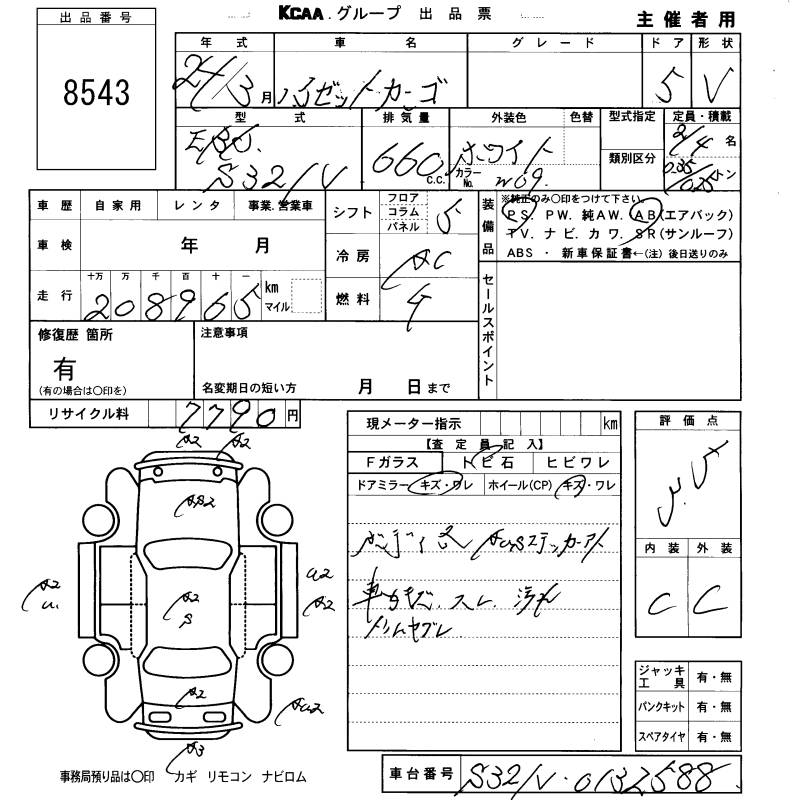 KCAA.グループ 出品票
主催者用
出品番号
8543
年式 車名 グレード ドア 形状
24/3月 ハイゼットカーゴ 5 V
型式 排気量 外装色 色替 型式指定 定員・積載
EBD. 660 c.c. ホワイト 2/4名
S321V カラーNo. W09. 類別区分 トン
車歴 自家用 レンタ 事業.営業車
シフト フロア コラム パネル 5
装備品
※純正のみ〇印をつけて下さい。
PS. PW. 純AW. AB(エアバック)
TV. ナビ. カワ. SR(サンルーフ)
ABS ・ 新車保証書←(注)後日送りのみ
車検 年 月
冷房 AC
走行 十万 万 千 百 十 一
208965 km マイル
燃料 G
セールスポイント
修復歴 箇所
有
(有の場合は〇印を)
注意事項
名変期日の短い方 月 日まで
リサイクル料 7790円
現メーター指示 km
【査定員記入】
Fガラス トビ石 ヒビワレ
ドアミラー キズ・ワレ ホイール(CP) キズ・ワレ
ステッカーアト
車内キズ. スレ. 汚れ
評価点
3.5
内装 外装
C C
A2 A2
A2
A2
S
A2
A2
A2
A3
ジャッキ工具 有・無
パンクキット 有・無
スペアタイヤ 有・無
事務局預り品は〇印 カギ リモコン ナビロム
車台番号 S321V-0132588